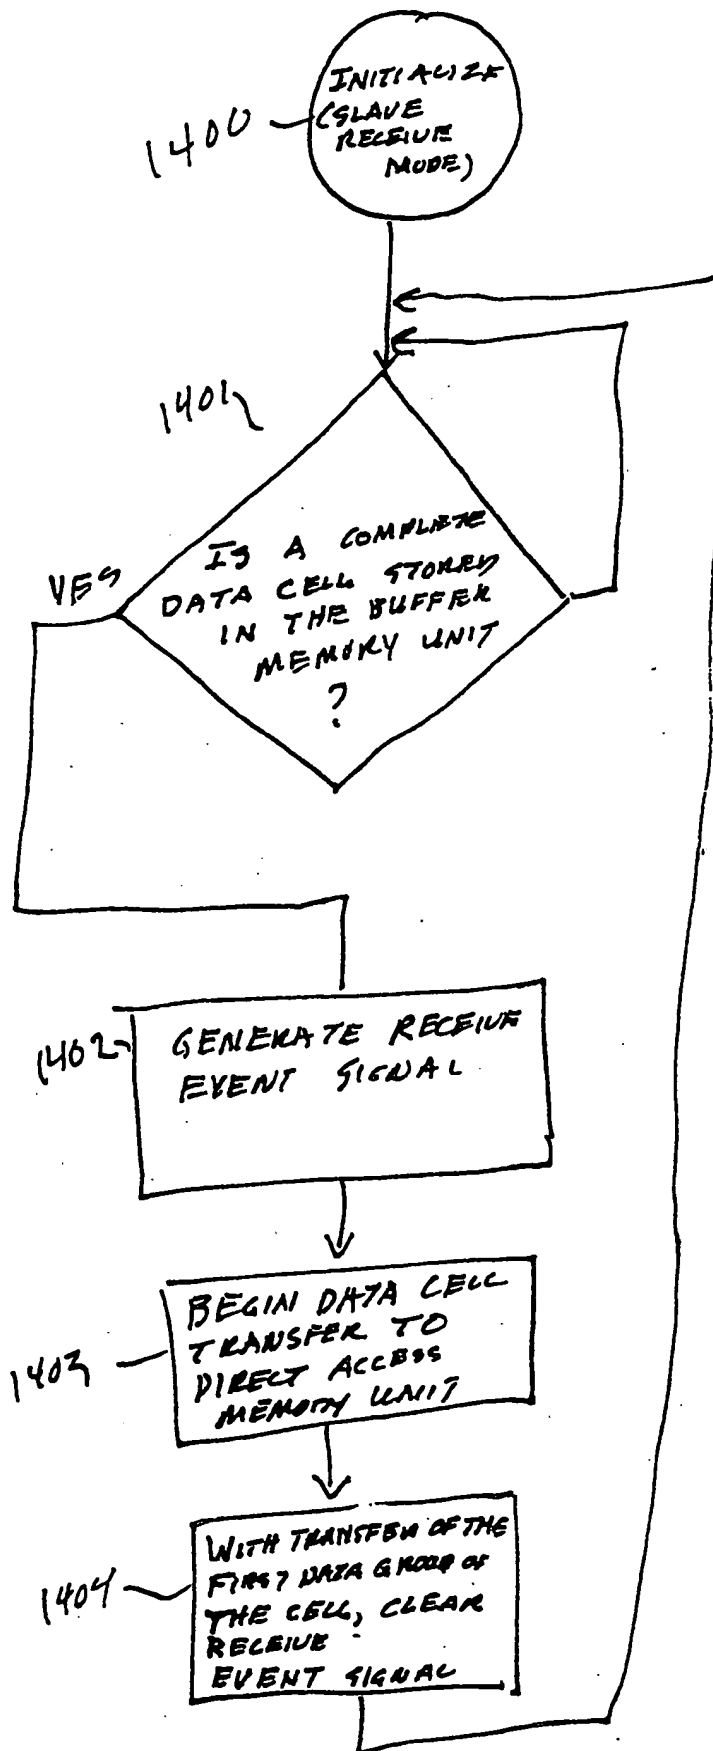 1400
INITIALIZE
(SLAVE
RECEIVE
MODE)
1401
YES
IS A COMPLETE
DATA CELL STORED
IN THE BUFFER
MEMORY UNIT
?
1402
GENERATE RECEIVE
EVENT SIGNAL
1403
BEGIN DATA CELL
TRANSFER TO
DIRECT ACCESS
MEMORY UNIT
1404
WITH TRANSFER OF THE
FIRST DATA GROUP OF
THE CELL, CLEAR
RECEIVE
EVENT SIGNAL